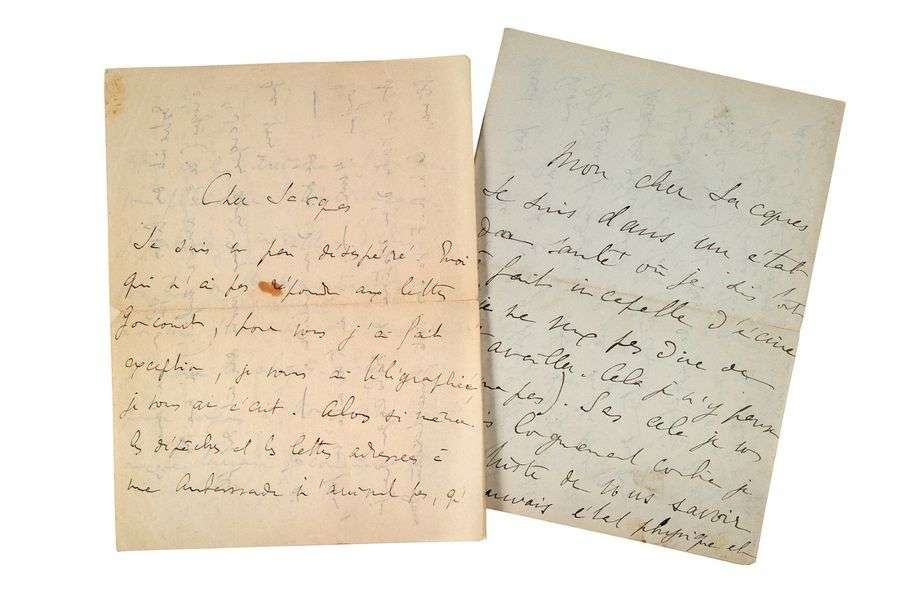 Cher Jacques
Je suis un peu désespéré. Moi
qui n'ai pas répondu aux lettres
Goncourt, pour vous j'ai fait
exception, je vous ai télégraphié
je vous ai écrit. Alors si même
les dépêches et les lettres adressées à
une Ambassade n'arrivent pas, qu'
Mon cher Jacques
Je suis dans un état
de santé où je suis tout
fait incapable d'écrire
je ne veux pas dire de
availler. Cela je n'y pense
me pas). Sans cela je vous
longuement combien je
triste de vous savoir
mauvais état physique et